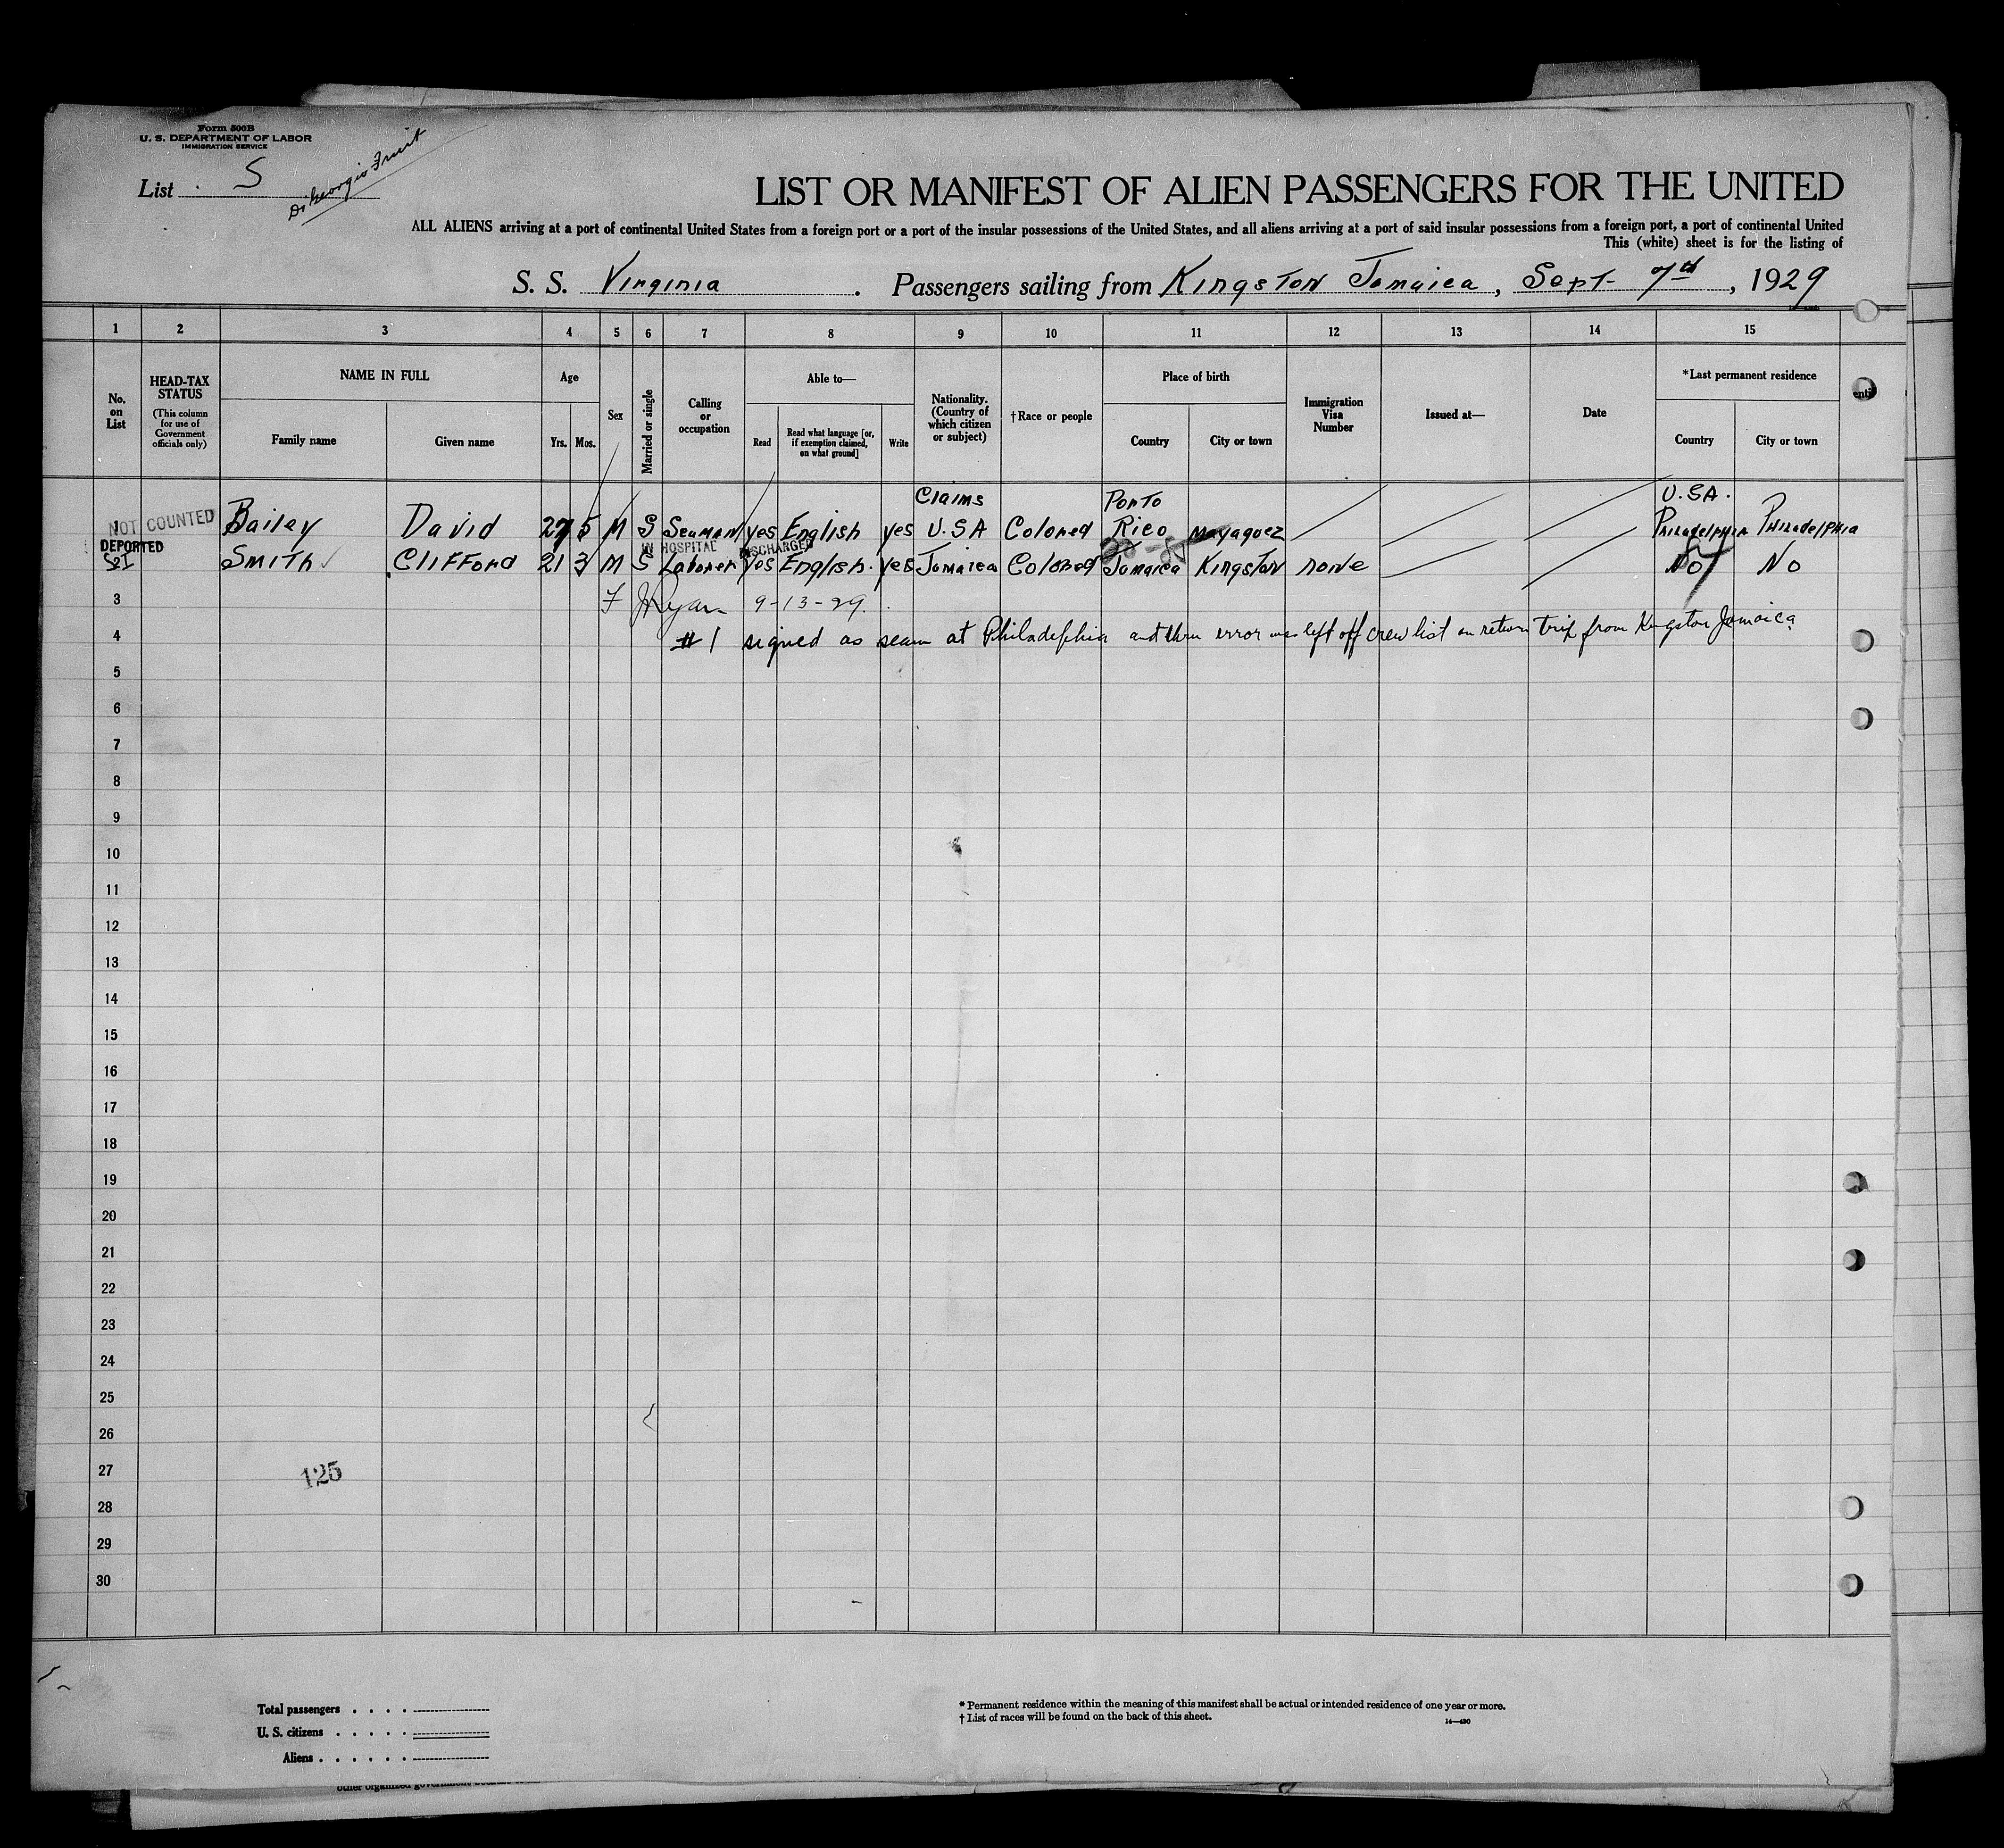 Form 500B
U. S. DEPARTMENT OF LABOR
IMMIGRATION SERVICE
List S
Di Georgio Fruit
LIST OR MANIFEST OF ALIEN PASSENGERS FOR THE UNITED
ALL ALIENS arriving at a port of continental United States from a foreign port or a port of the insular possessions of the United States, and all aliens arriving at a port of said insular possessions from a foreign port, a port of continental United
This (white) sheet is for the listing of
S. S. Virginia. Passengers sailing from Kingston Jamaica, Sept- 7th, 1929
1 2 3 4 5 6 7 8 9 10 11 12 13 14 15
No. on List
HEAD-TAX STATUS
(This column for use of Government officials only)
NAME IN FULL
Family name
Given name
Age
Yrs.
Mos.
Sex
Married or single
Calling or occupation
Able to—
Read
Read what language [or, if exemption claimed, on what ground]
Write
Nationality. (Country of which citizen or subject)
†Race or people
Place of birth
Country
City or town
Immigration Visa Number
Issued at—
Date
*Last permanent residence
Country
City or town
1 NOT COUNTED Bailey David 27 5 M S Seaman yes English yes Claims U.S.A Colored Porto Rico Mayaguez U.S.A. Philadelphia Philadelphia
DEPORTED
IN HOSPITAL DISCHARGED
SI Smith Clifford 21 3 M S Laborer yes English. yes Jamaica Colored Jamaica Kingston none No No
3 Ryan 9-13-29.
4 #1 signed as seam at Philadelphia and thru error was left off crew list on return trip from Kingston Jamaica
5
6
7
8
9
10
11
12
13
14
15
16
17
18
19
20
21
22
23
24
25
26
27
125
28
29
30
Total passengers
U. S. citizens
Aliens
* Permanent residence within the meaning of this manifest shall be actual or intended residence of one year or more.
† List of races will be found on the back of this sheet.
14—430